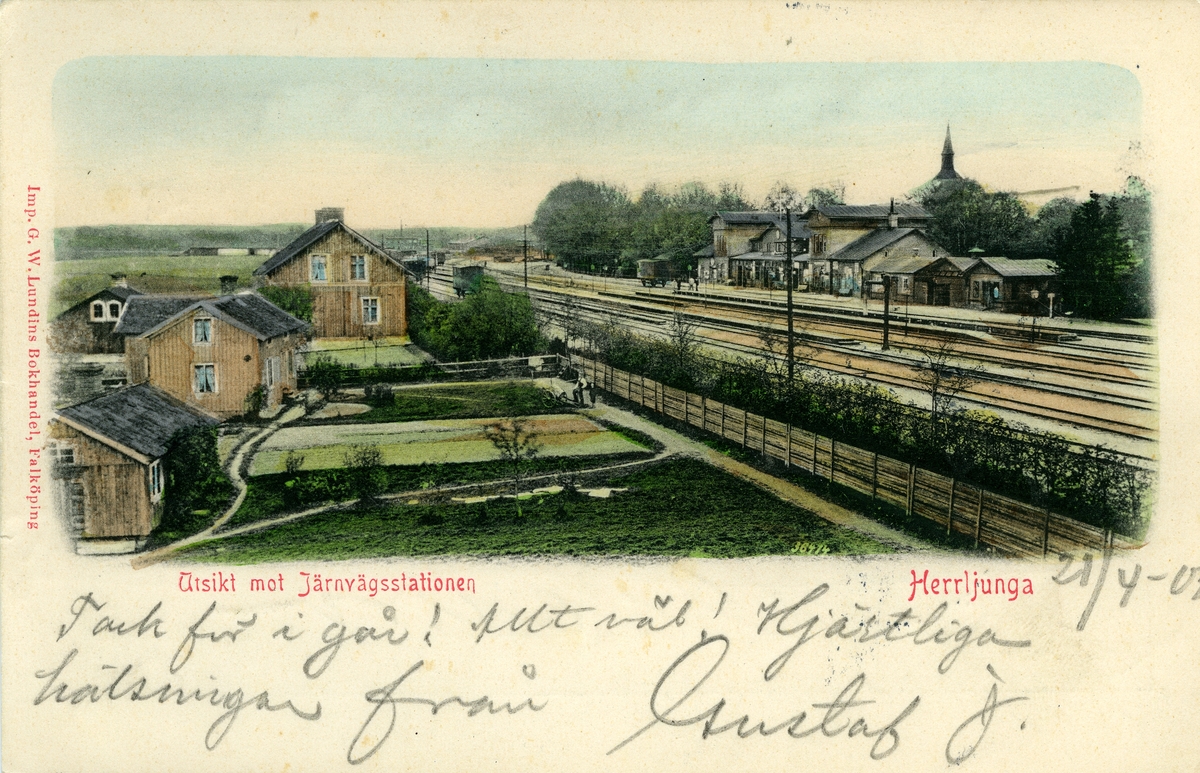 Imp. G. W. Lundins Bokhandel, Falköping
38474
Utsikt mot Järnvägsstationen
Herrljunga
21/4-02
Tack för i går! Allt väl! Hjärtliga
hälsningar från Gustaf J.